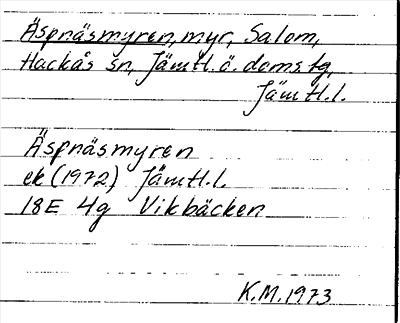 Äspnäsmyren, myr, Salom,
Hackås sn, Jämtl. ö. doms.fg,
Jämtl.l.
Äspnäsmyren
ek (1972) Jämtl.l.
18E 4g Vikbäcken
K.M. 1973